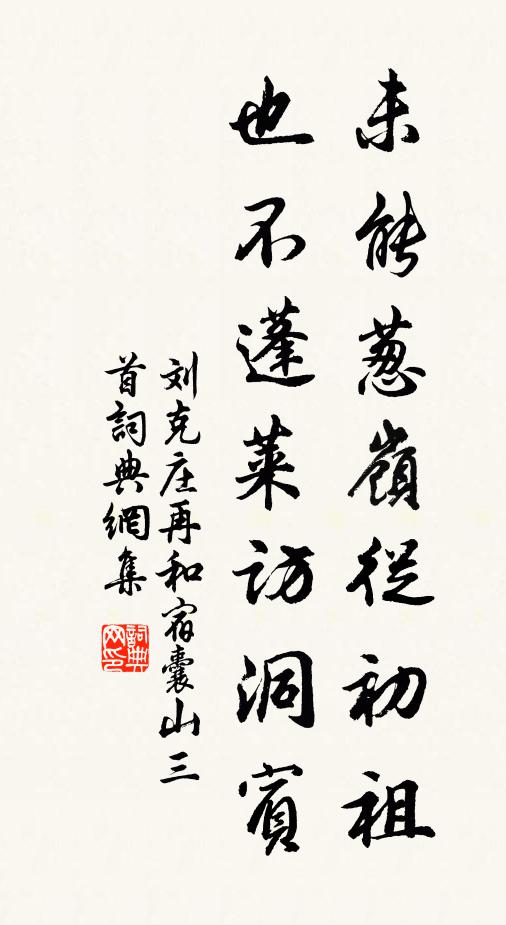 未能葱嶺從初祖
也不蓬萊訪洞賓
刘克庄再和宿囊山三
首詞典網集
詞典
网印